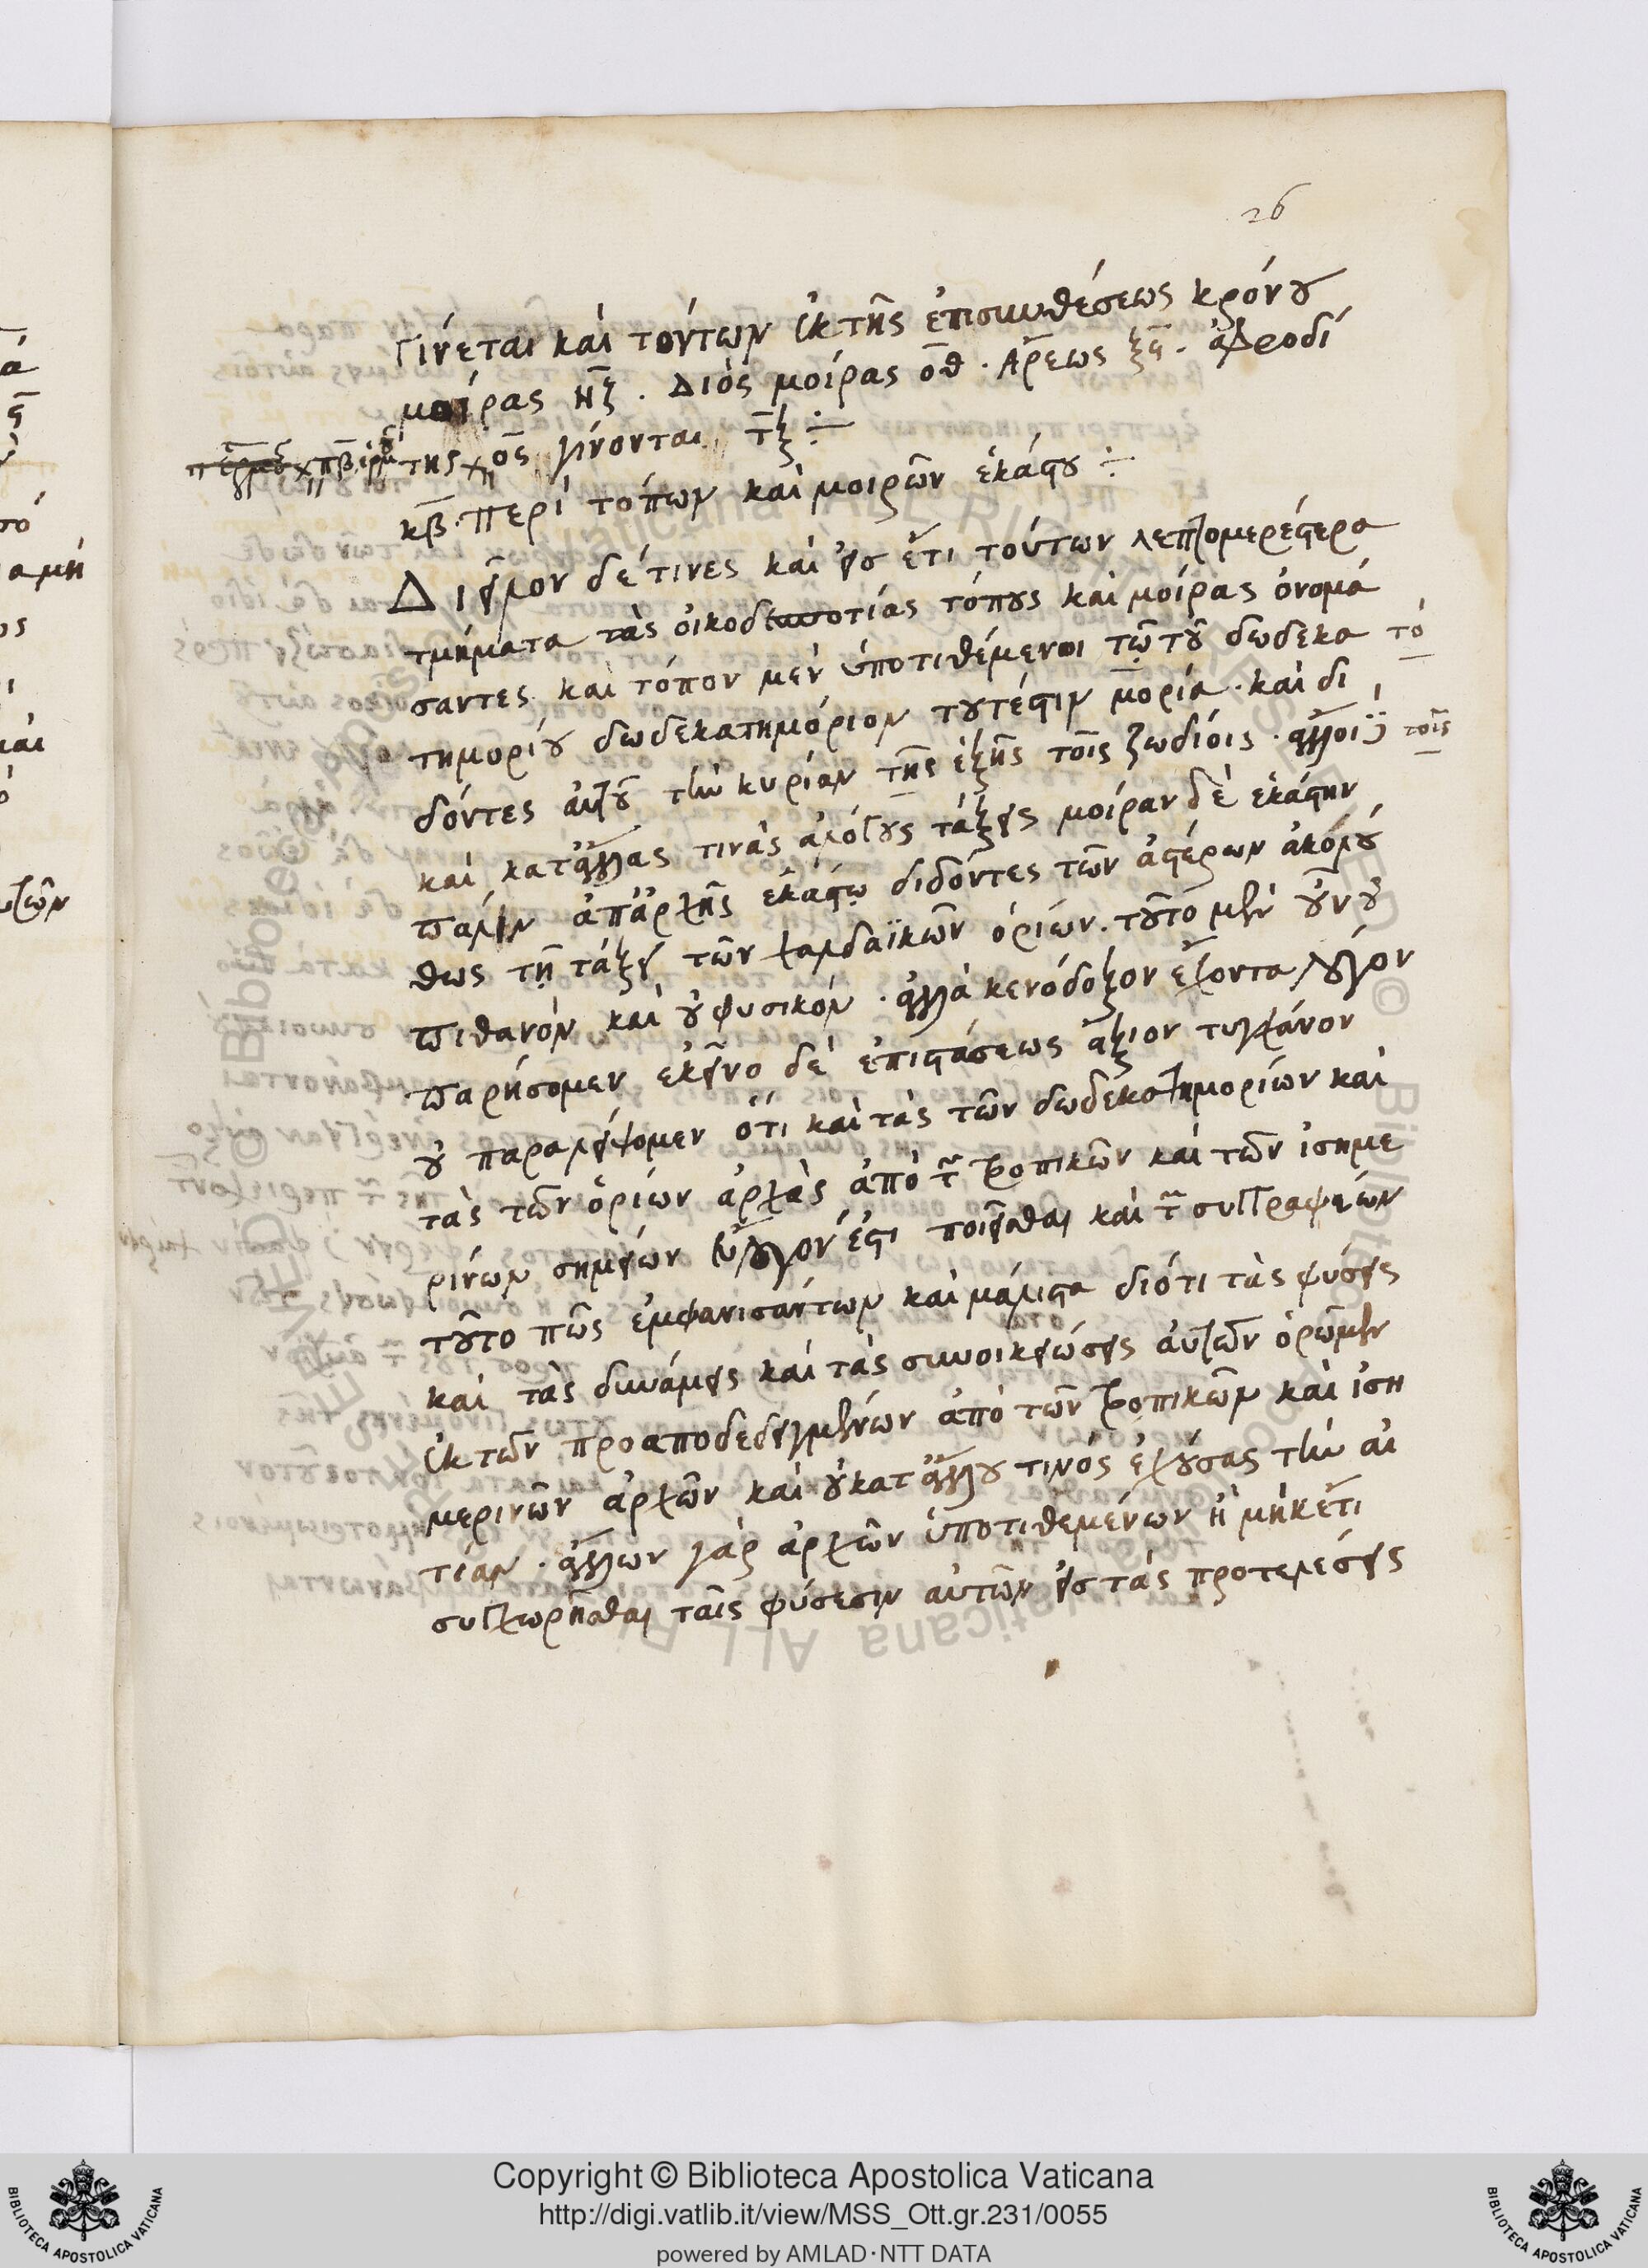 26
Γίνεται καὶ τούτων ἐκ τῆς ἐπισυνθέσεως κρόνου
μοίρας νζ. Διὸς μοίρας οθ. Ἄρεως ξϛ. ἀφροδί
της οε γίνονται τξ
κβ. Περὶ τόπων καὶ μοιρῶν ἑκάστου
Διεῖλον δέ τινες καὶ εἰς ἔτι τούτων λεπτομερέστερα
τμήματα τὰς οἰκοδεσποτίας τόπους καὶ μοίρας ὀνομά
σαντες καὶ τόπον μὲν ὑποτιθέμενοι τῷ τοῦ δωδεκα τὸ
τημορίου δωδεκατημόριον τουτέστιν μορία. καὶ δι
δόντες αὐτοῦ τὴν κυρίαν τῆς ἑξῆς τοῖς ζωδίοις. ἄλλοι τοῖς
καὶ κατ' ἄλλας τινὰς ἀλόγους τάξεις μοίραν δὲ ἑκάστην
πάλιν ἀπ' ἀρχῆς ἑκάστῳ διδόντες τῶν ἀστέρων ἀκολού
θως τῇ τάξει τῶν χαλδαϊκῶν ὁρίων. τοῦτο μὲν οὖν οὐ
πιθανὸν καὶ οὐ φυσικόν. ἀλλὰ κενόδοξον ἔχοντα λόγον
παρήσομεν ἐκεῖνο δὲ ἐπιστάσεως ἄξιον τυγχάνον
οὐ παραλείψομεν ὅτι καὶ τὰς τῶν δωδεκατημορίων καὶ
τὰς τῶν ὁρίων ἀρχὰς ἀπὸ τῶν τροπικῶν καὶ τῶν ἰσημε
ρινῶν σημείων εὔλογόν ἐστι ποιεῖσθαι καὶ τῶν συγγραφέων
τοῦτο πῶς ἐμφανισάντων καὶ μάλιστα διότι τὰς φύσεις
καὶ τὰς δυνάμεις καὶ τὰς συνοικειώσεις αὐτῶν ὁρῶμεν
ἐκ τῶν προαποδεδειγμένων ἀπὸ τῶν τροπικῶν καὶ ἰση
μερινῶν ἀρχῶν καὶ οὐκ ἀτ' ἄλλου τινὸς ἐχούσας τὴν αἰ
τίαν. ἄλλων γὰρ ἀρχῶν ὑποτιθεμένων ἢ μηκέτι
συγχωρῆσθαι ταῖς φύσεσιν αὐτῶν εἰς τὰς προτελέσεις
Copyright © Biblioteca Apostolica Vaticana
http://digi.vatlib.it/view/MSS_Ott.gr.231/0055
powered by AMLAD·NTT DATA
BIBLIOTECA APOSTOLICA VATICANA
BIBLIOTECA APOSTOLICA VATICANA